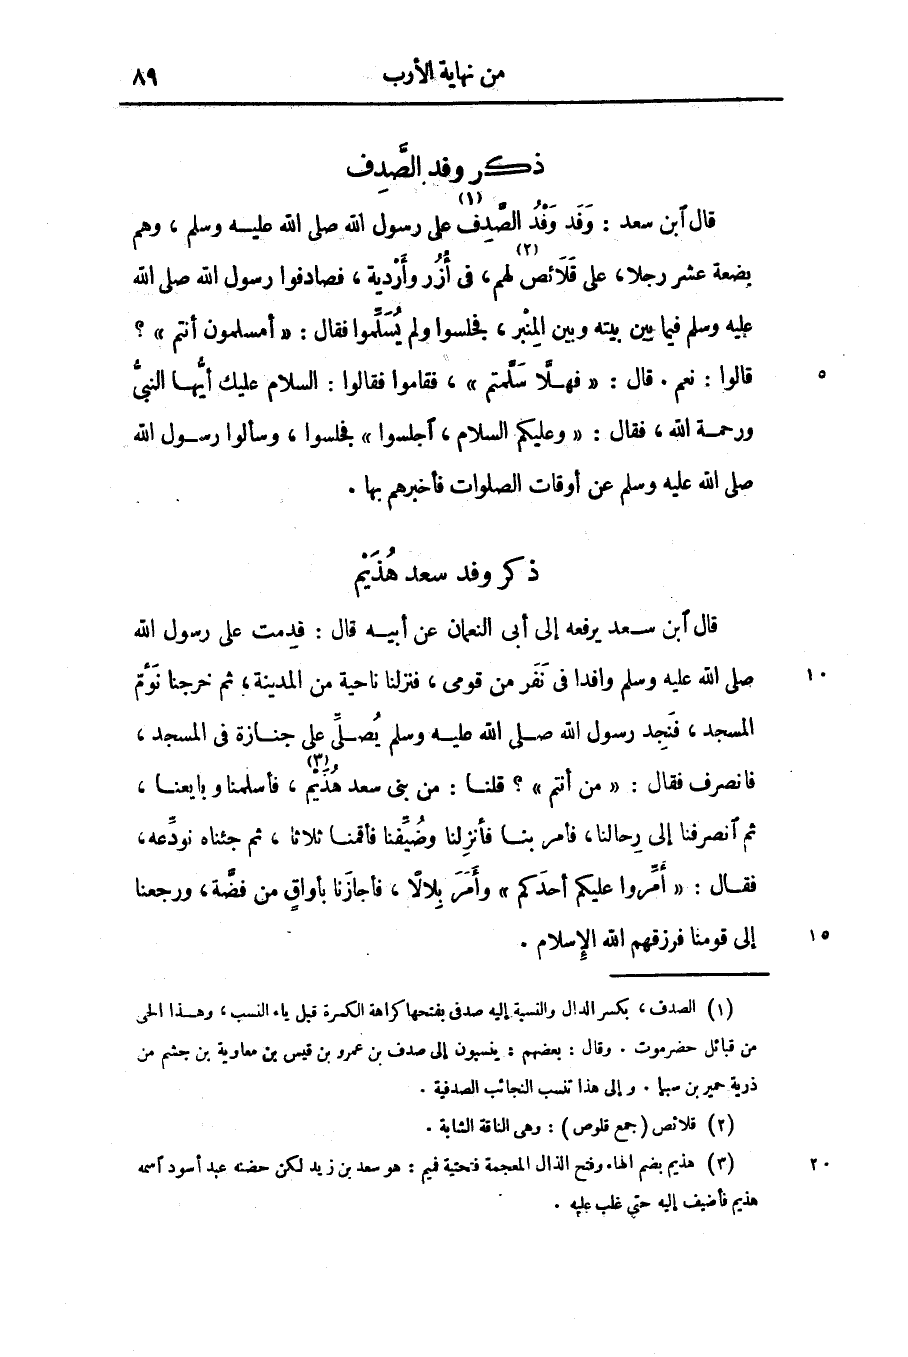 من نهاية الأرب ٨٩
ذكر وفد الصَّدِف
قال ٱبن سعد : وَفَد وَفْدُ الصَّدِف (١) على رسول الله صلى الله عليه وسلم ، وهم
بضعة عشر رجلا، على قَلَائص (٢) لهم، فى أُزُر وأَرْدية ، فصادفوا رسول الله صلى الله
عليه وسلم فيما بين بيته وبين المِنْبر ، فجلسوا ولم يُسَلِّموا فقال : « أمسلمون أنتم » ؟
قالوا : نعم . قال : « فهلَّا سَلَّمتم » ، فقاموا فقالوا : السلام عليك أيُّها النبيُّ ٥
ورحمة الله ، فقال : « وعليكم السلام ، ٱجلسوا » فجلسوا ، وسألوا رسول الله
صلى الله عليه وسلم عن أوقات الصلوات فأخبرهم بها .
ذكر وفد سعد هُذَيْم
قال ٱبن سعد يرفعه إلى أبى النعمان عن أبيه قال : قدِمت على رسول الله
صلى الله عليه وسلم وافدا فى نَفَر من قومى ، فنزلنا ناحية من المدينة ، ثم خرجنا نَؤمّ ١٠
المسجد ، فَنَجِد رسول الله صلى الله عليه وسلم يُصلِّى على جنازة فى المسجد ،
فانصرف فقال : « من أنتم » ؟ قلنا : من بنى سعد هُذَيْم (٣) ، فأسلمنا وبايعنا ،
ثم ٱنصرفنا إلى رِحالنا، فأمر بنا فأُنزِلنا وضُيِّفنا فأقمنا ثلاثا ، ثم جئناه نودِّعه،
فقال : « أَمِّروا عليكم أحدَكم » وأَمَرَ بِلالًا ، فأجازَنا بأواقٍ من فضَّة، ورجعنا
إلى قومنا فرزقهم الله الإِسلام . ١٥
(١) الصدف ، بكسر الدال والنسبة إليه صدفى بفتحها كراهة الكسرة قبل ياء النسب ، وهذا الحى
من قبائل حضرموت . وقال : بعضهم : ينسبون إلى صدف بن عمرو بن قيس بن معاوية بن جشم من
ذرية حمير بن سبإ . وإلى هذا تنسب النجائب الصدفية .
(٢) قلائص (جمع قلوص) : وهى الناقة الشابة .
(٣) هذيم بضم الهاء وفتح الذال المعجمة فتحتية فيم : هو سعد بن زيد لكن حضنه عبد أسود ٱسمه ٢٠
هذيم فأضيف إليه حتى غلب عليه .